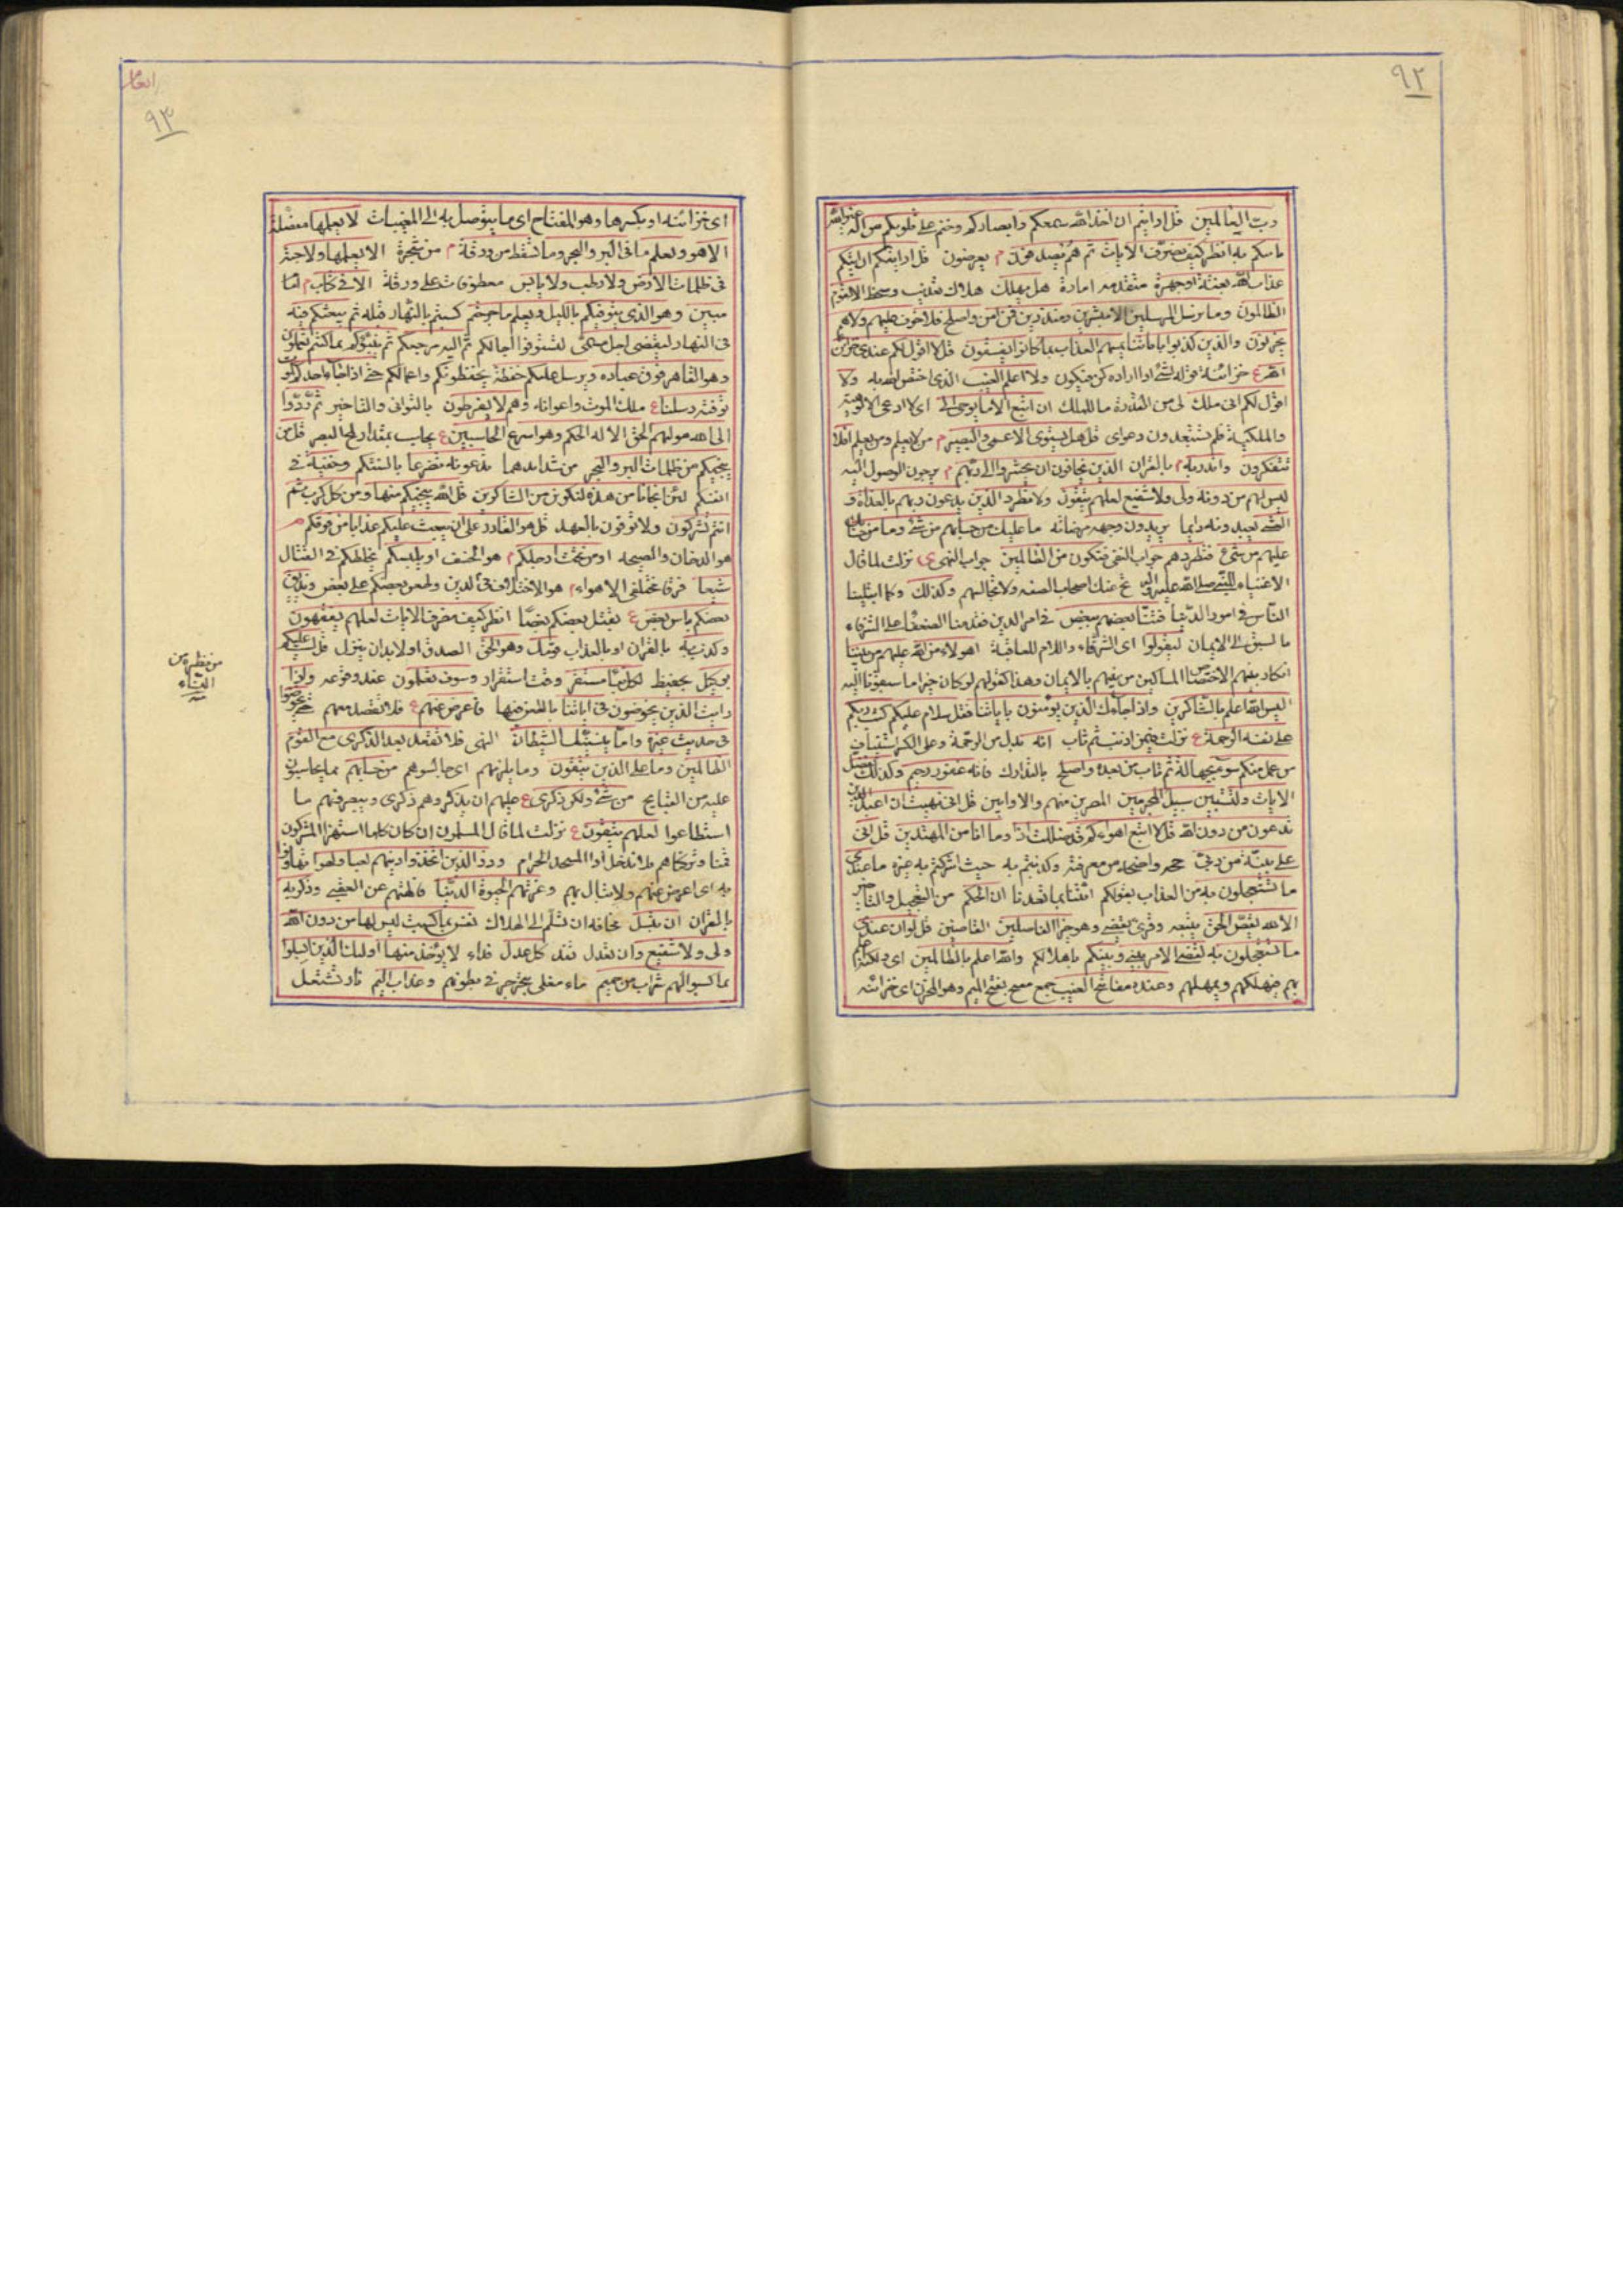 ٩٢
رب العالمين قل ارايتم ان اخذ الله سمعكم وابصاركم وختم على قلوبكم من اله غير الله
ياتيكم به انظر كيف نصرف الايات ثم هم يصدفون م يعرضون قل ارايتكم ان اتيكم
عذاب الله بغتة او جهرة متقدمه امارة هل يهلك هلاك تعذيب وسخط الا القوم
الظالمون وما نرسل المرسلين الا مبشرين ومنذرين فمن امن واصلح فلا خوف عليهم ولا هم
يحزنون والذين كذبوا باياتنا يمسهم العذاب بما كانوا يفسقون قل لا اقول لكم عندي خزائن
الله ع خزائنه قوله لشئ اذا اراده كن فيكون ولا اعلم الغيب الذى اختص الله به ولا
اقول لكم انى ملك لى من القدرة ما للملك ان اتبع الا ما يوحى الى اى لا ادعى الالوهية
والملكية فلم تستبعدون دعواى قل هل يستوى الاعمى والبصير م من لا يعلم ومن يعلم افلا
تتفكرون وانذر به م بالقران الذين يخافون ان يحشروا الى ربهم م يرجون الوصول اليه
ليس لهم من دونه ولى ولا شفيع لعلهم يتقون ولا تطرد الذين يدعون ربهم بالغداة و
العشى يعبدونه دايما يريدون وجهه مرضاته ما عليك من حسابهم من شئ وما من حسابك
عليهم من شئ فتطردهم جواب النفى فتكون من الظالمين جواب النهى ى نزلت لما قال
الاغنياء للنبى صلى الله عليه واله نح عنك اصحاب الصفه ولا تجالسهم وكذلك وكما ابتلينا
الناس فى امور الدنيا فتنا بعضهم ببعض فى امر الدين فقدمنا الضعفاء على الشرفاء
بالسبق الى الايمان ليقولوا اى الشرفاء واللام للعاقبة اهولاء من الله عليهم من بيننا
انكار بينهم الاختصاص المساكين من بينهم بالايمان وهذا كقولهم لو كان خيرا ما سبقونا اليه
اليس الله اعلم بالشاكرين واذا جاءك الذين يؤمنون باياتنا فقل سلام عليكم كتب ربكم
على نفسه الرحمة ع نزلت فيمن اذنب ثم تاب انه بدل من الرحمة وعلى الكسر استيناف
من عمل منكم سوء بجهالة ثم تاب من بعده واصلح بالتدارك فانه غفور رحيم وكذلك نفصل
الايات ولتستبين سبيل المجرمين المصرين منهم والاوابين قل انى نهيت ان اعبد الذين
تدعون من دون الله قل لا اتبع اهواءكم قد ضللت اذا وما انا من المهتدين قل انى
على بينة من ربى حجه واضحه من معرفته وكذبتم به حيث اشركتم به غيره ما عندى
ما تستعجلون به من العذاب بقولكم ائتنا بما تعدنا ان الحكم من التعجيل والتاخير
الا لله يقص الحق يتبعه وقرئ يقضى وهو خير الفاصلين القاضين قل لو ان عندى
ما تستعجلون به لقضى الامر بينى وبينكم باهلاككم والله اعلم بالظالمين
بهم فيهلكهم ويمهلهم وعنده مفاتح الغيب جمع مفتح بفتح الميم وهو المخزن اى خزائنه
انعام
٩٣
اى خزائنه او بكسرها وهو المفتاح اى ما يتوصل به الى المغيبات لا يعلمها مفصلة
الا هو ويعلم ما فى البر والبحر وما تسقط من ورقة م من شجرة الا يعلمها ولا حبة
فى ظلمات الارض ولا رطب ولا يابس معطوفات على ورقة الا فى كتاب م
مبين وهو الذى يتوفيكم بالليل ويعلم ما جرحتم كسبتم بالنهار قبله ثم يبعثكم فيه
فى النهار ليقضى اجل مسمى لتستوفوا اجالكم ثم اليه مرجعكم ثم ينبئكم بما كنتم تعملون
وهو القاهر فوق عباده ويرسل عليكم حفظة يحفظونكم واعمالكم حتى اذا جاء احدكم الموت
توفته رسلنا ع ملك الموت واعوانه وهم لا يفرطون بالتوانى والتاخير ثم ردوا
الى الله موليهم الحق الا له الحكم وهو اسرع الحاسبين ع يحاسب بمقدار لمح البصر قل من
ينجيكم من ظلمات البر والبحر من شدايدهما تدعونه تضرعا بالسنتكم وخفية فى
انفسكم لئن انجانا من هذه لنكونن من الشاكرين قل الله ينجيكم منها ومن كل كرب ثم
انتم تشركون ولا توفون بالعهد قل هو القادر على ان يبعث عليكم عذابا من فوقكم م
هو الدخان والصيحه او من تحت ارجلكم م هو الخسف او يلبسكم يخلطكم فى القتال
شيعا فرقا مختلفى الاهواء م هو الاختلاف فى الدين وطعن بعضكم على بعض ويذيق
بعضكم باس بعض ع يقتل بعضكم بعضا انظر كيف نصرف الايات لعلهم يفقهون
وكذب به بالقران او بالعذاب قومك وهو الحق الصدق او لا بد ان ينزل قل لست عليكم
بوكيل بحفيظ لكل نبا مستقر وقت استقرار وسوف تعلمون عند وقوعه واذا
رايت الذين يخوضون فى اياتنا بالطعن فيها فاعرض عنهم ع فلا تقعد معهم حتى يخوضوا
فى حديث غيره واما ينسينك الشيطان النهى فلا تقعد بعد الذكرى مع القوم
الظالمين وما على الذين يتقون وما يلزمهم اى جالسوهم من حسابهم مما يحاسبون
عليه من القبايح من شئ ولكن ذكرى ع عليهم ان يذكروهم ذكرى ويبصروهم ما
استطاعوا لعلهم يتقون ع نزلت لما قال المسلمون ان كان كلما استهزا المشركون
قمنا وتركناهم فلا ندخل اذا المسجد الحرام وذر الذين اتخذوا دينهم لعبا ولهوا تهاونوا
به اى اعرض عنهم ولا تبال بهم وغرتهم الحيوة الدنيا فالهتهم عن العقبى وذكر به
بالقران ان تبسل مخافه ان تسلم الى الهلاك نفس بما كسبت ليس لها من دون الله
ولى ولا شفيع وان تعدل تفد كل عدل فداء لا يؤخذ منها اولئك الذين ابسلوا
بما كسبوا لهم شراب من حميم ماء مغلى يتجرجر فى بطونهم وعذاب اليم نار تشتعل